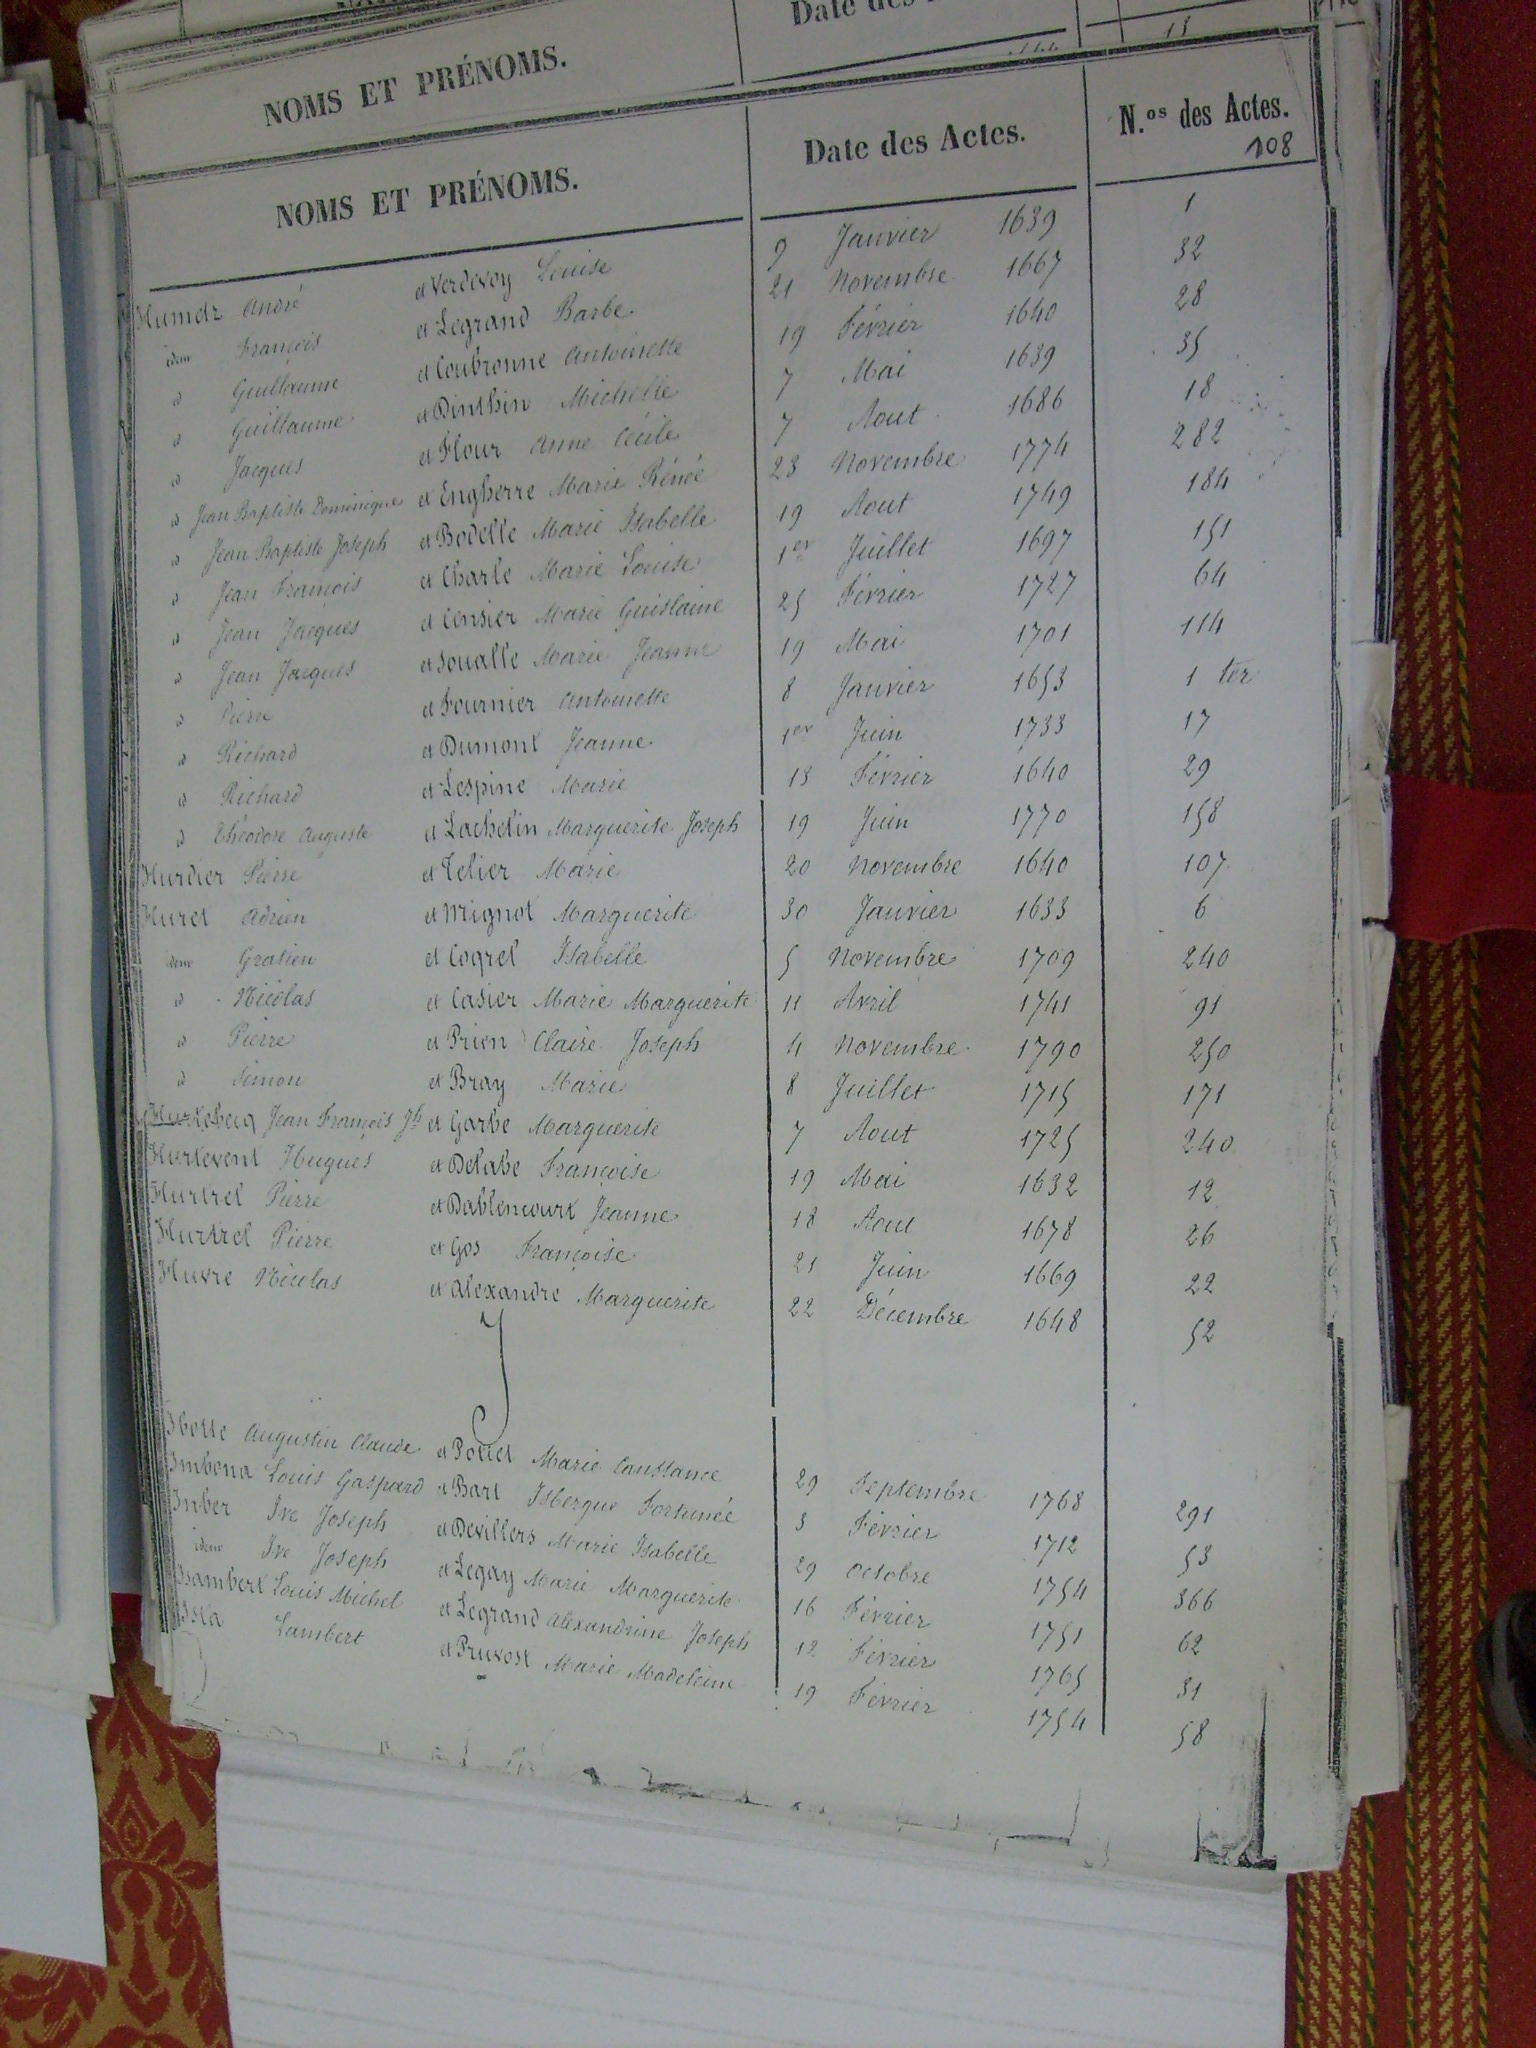 NOMS ET PRÉNOMS.
NOMS ET PRÉNOMS. Date des Actes. N.os des Actes.
108
Humetz André et Verdevoy Louise 9 Janvier 1639 1
idem François et Legrand Barbe 21 Novembre 1667 32
id Guillaume et Coubronne Antoinette 19 Février 1640 28
id Guillaume et Dinthin Michelle 7 Mai 1639 35
id Jacques et Flour Anne Cécile 7 Aout 1686 18
id Jean Baptiste Dominique et Engherre Marie Rénée 23 Novembre 1774 282
id Jean Baptiste Joseph et Bodelle Marie Isabelle 19 Aout 1749 184
id Jean François et Charle Marie Louise 1er Juillet 1697 151
id Jean Jacques et Censier Marie Guislaine 25 Février 1727 64
id Jean Jacques et Soualle Marie Jeanne 19 Mai 1701 114
id Pierre et Fournier Antoinette 8 Janvier 1653 1 ter
id Richard et Dumont Jeanne 1er Juin 1733 17
id Richard et Lespine Marie 13 Février 1640 29
id Théodore Auguste et Lachelin Marguerite Joseph 19 Juin 1770 158
Hurdier Pierre et Telier Marie 20 Novembre 1640 107
Huret Adrien et Mignot Marguerite 30 Janvier 1633 6
idem Gratien et Cogrel Isabelle 5 Novembre 1709 240
id Nicolas et Casier Marie Marguerite 11 Avril 1741 91
id Pierre et Prien Claire Joseph 4 Novembre 1790 250
id Simon et Bray Marie 8 Juillet 1715 171
Hurtebecq Jean François Jh et Garbe Marguerite 7 Aout 1725 240
Hurtevent Hugues et Delabe Françoise 19 Mai 1632 12
Hurtrel Pierre et Dablencourt Jeanne 18 Aout 1678 26
Hurtrel Pierre et Gos Françoise 21 Juin 1669 22
Huvre Nicolas et Alexandre Marguerite 22 Décembre 1648 52
J
Ibotte Augustin Claude et Potiet Marie Constance 29 Septembre 1768 291
Imbona Louis Gaspard et Bart Isbergue Fortunée 3 Février 1712 53
Inber Ive Joseph et Devillers Marie Isabelle 29 Octobre 1754 366
idem Ive Joseph et Legay Marie Marguerite 16 Février 1751 62
Isambert Louis Michel et Legrand Alexandrine Joseph 12 Février 1765 31
Issa Lambert et Pruvost Marie Madeleine 19 Février 1754 58